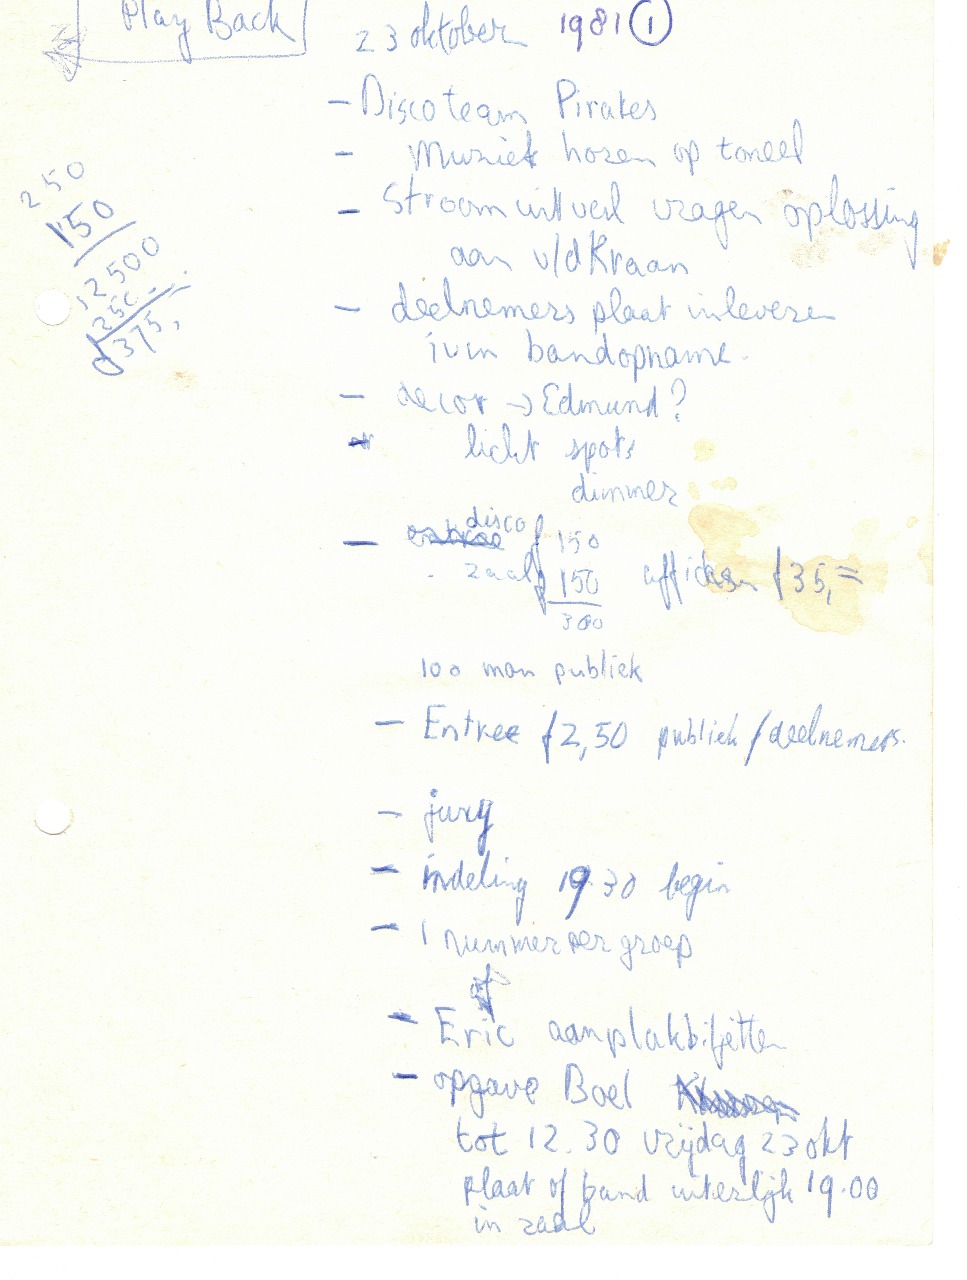 Play Back
23 oktober 1981 ①
250
150
12500
250
ƒ375,
- Disco team Pirates
- Muziek horen op toneel
- Stroomuitval vragen oplossing
aan v/d Kraan
- deelnemers plaat inleveren
ivm bandopname.
- decor → Edmund?
- licht spots
dimmer
- disco ƒ 150
zaal ƒ 150 affiches ƒ35,=
300
100 man publiek
- Entree ƒ2,50 publiek/deelnemers.
- jury
- indeling 19.30 begin
- 1 nummer per groep
of
- Eric aanplakbiljetten
- opgave Boel
tot 12.30 vrijdag 23 okt
plaat of band uiterlijk 19.00
in zaal